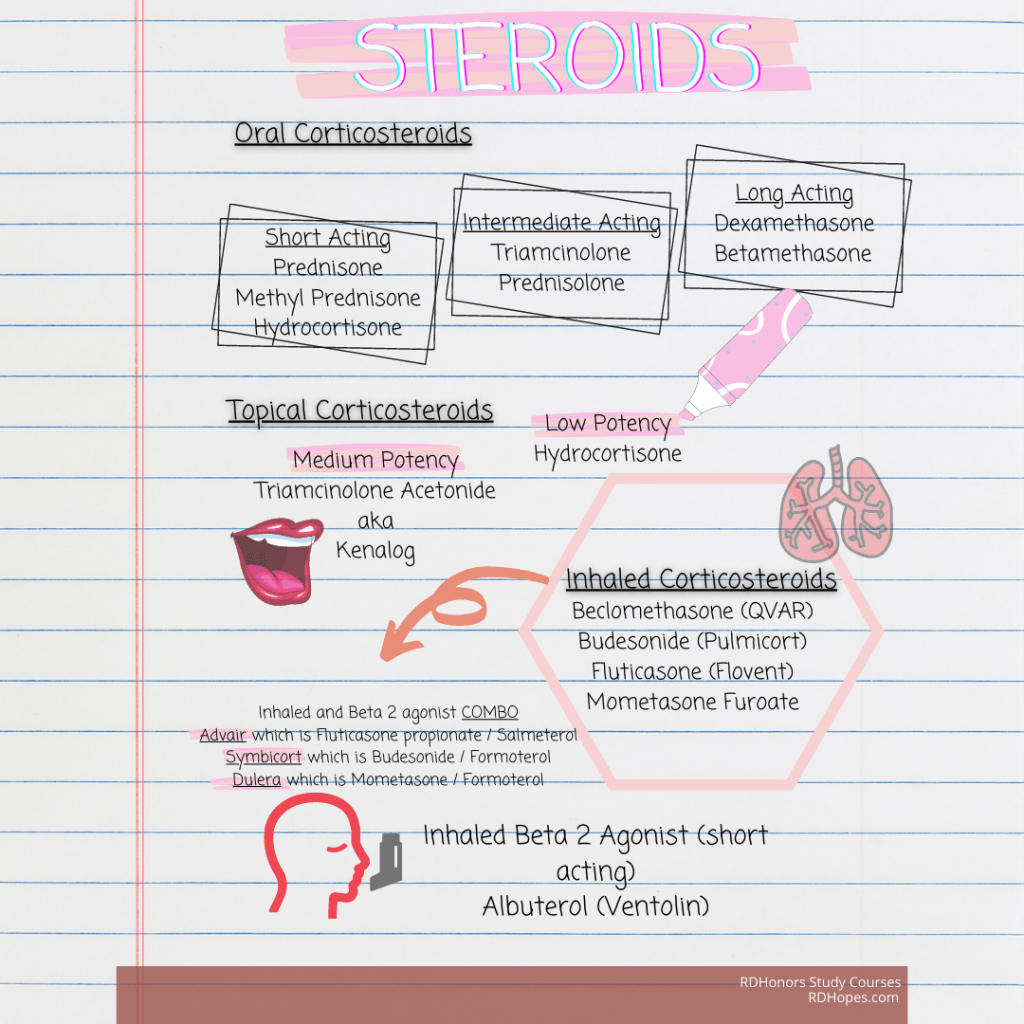 STEROIDS
Oral Corticosteroids
Short Acting
Prednisone
Methyl Prednisone
Hydrocortisone
Intermediate Acting
Triamcinolone
Prednisolone
Long Acting
Dexamethasone
Betamethasone
Topical Corticosteroids
Medium Potency
Triamcinolone Acetonide
aka
Kenalog
Low Potency
Hydrocortisone
Inhaled Corticosteroids
Beclomethasone (QVAR)
Budesonide (Pulmicort)
Fluticasone (Flovent)
Mometasone Furoate
Inhaled and Beta 2 agonist COMBO
Advair which is Fluticasone propionate / Salmeterol
Symbicort which is Budesonide / Formoterol
Dulera which is Mometasone / Formoterol
Inhaled Beta 2 Agonist (short
acting)
Albuterol (Ventolin)
RDHonors Study Courses
RDHopes.com